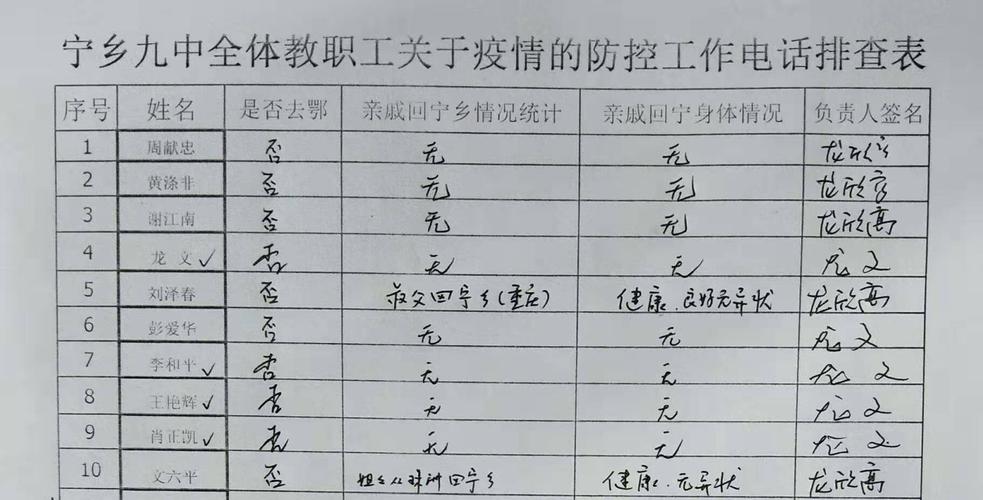 宁乡九中全体教职工关于疫情的防控工作电话排查表
序号 姓名 是否去鄂 亲戚回宁乡情况统计 亲戚回宁身体情况 负责人签名
1 周献忠 否 无 无 龙欣高
2 黄涤非 否 无 无 龙欣高
3 谢江南 否 无 无 龙欣高
4 龙文✓ 否 无 无 龙文
5 刘泽春 否 叔父回宁乡(重庆) 健康.良好无异状 龙欣高
6 彭爱华 否 无 无 龙文
7 李和平✓ 否 无 无 龙文
8 王艳辉✓ 否 无 无 龙文
9 肖正凯✓ 否 无 无 龙文
10 文六平 否 姐乡从株洲回宁乡 健康.无异状 龙欣高